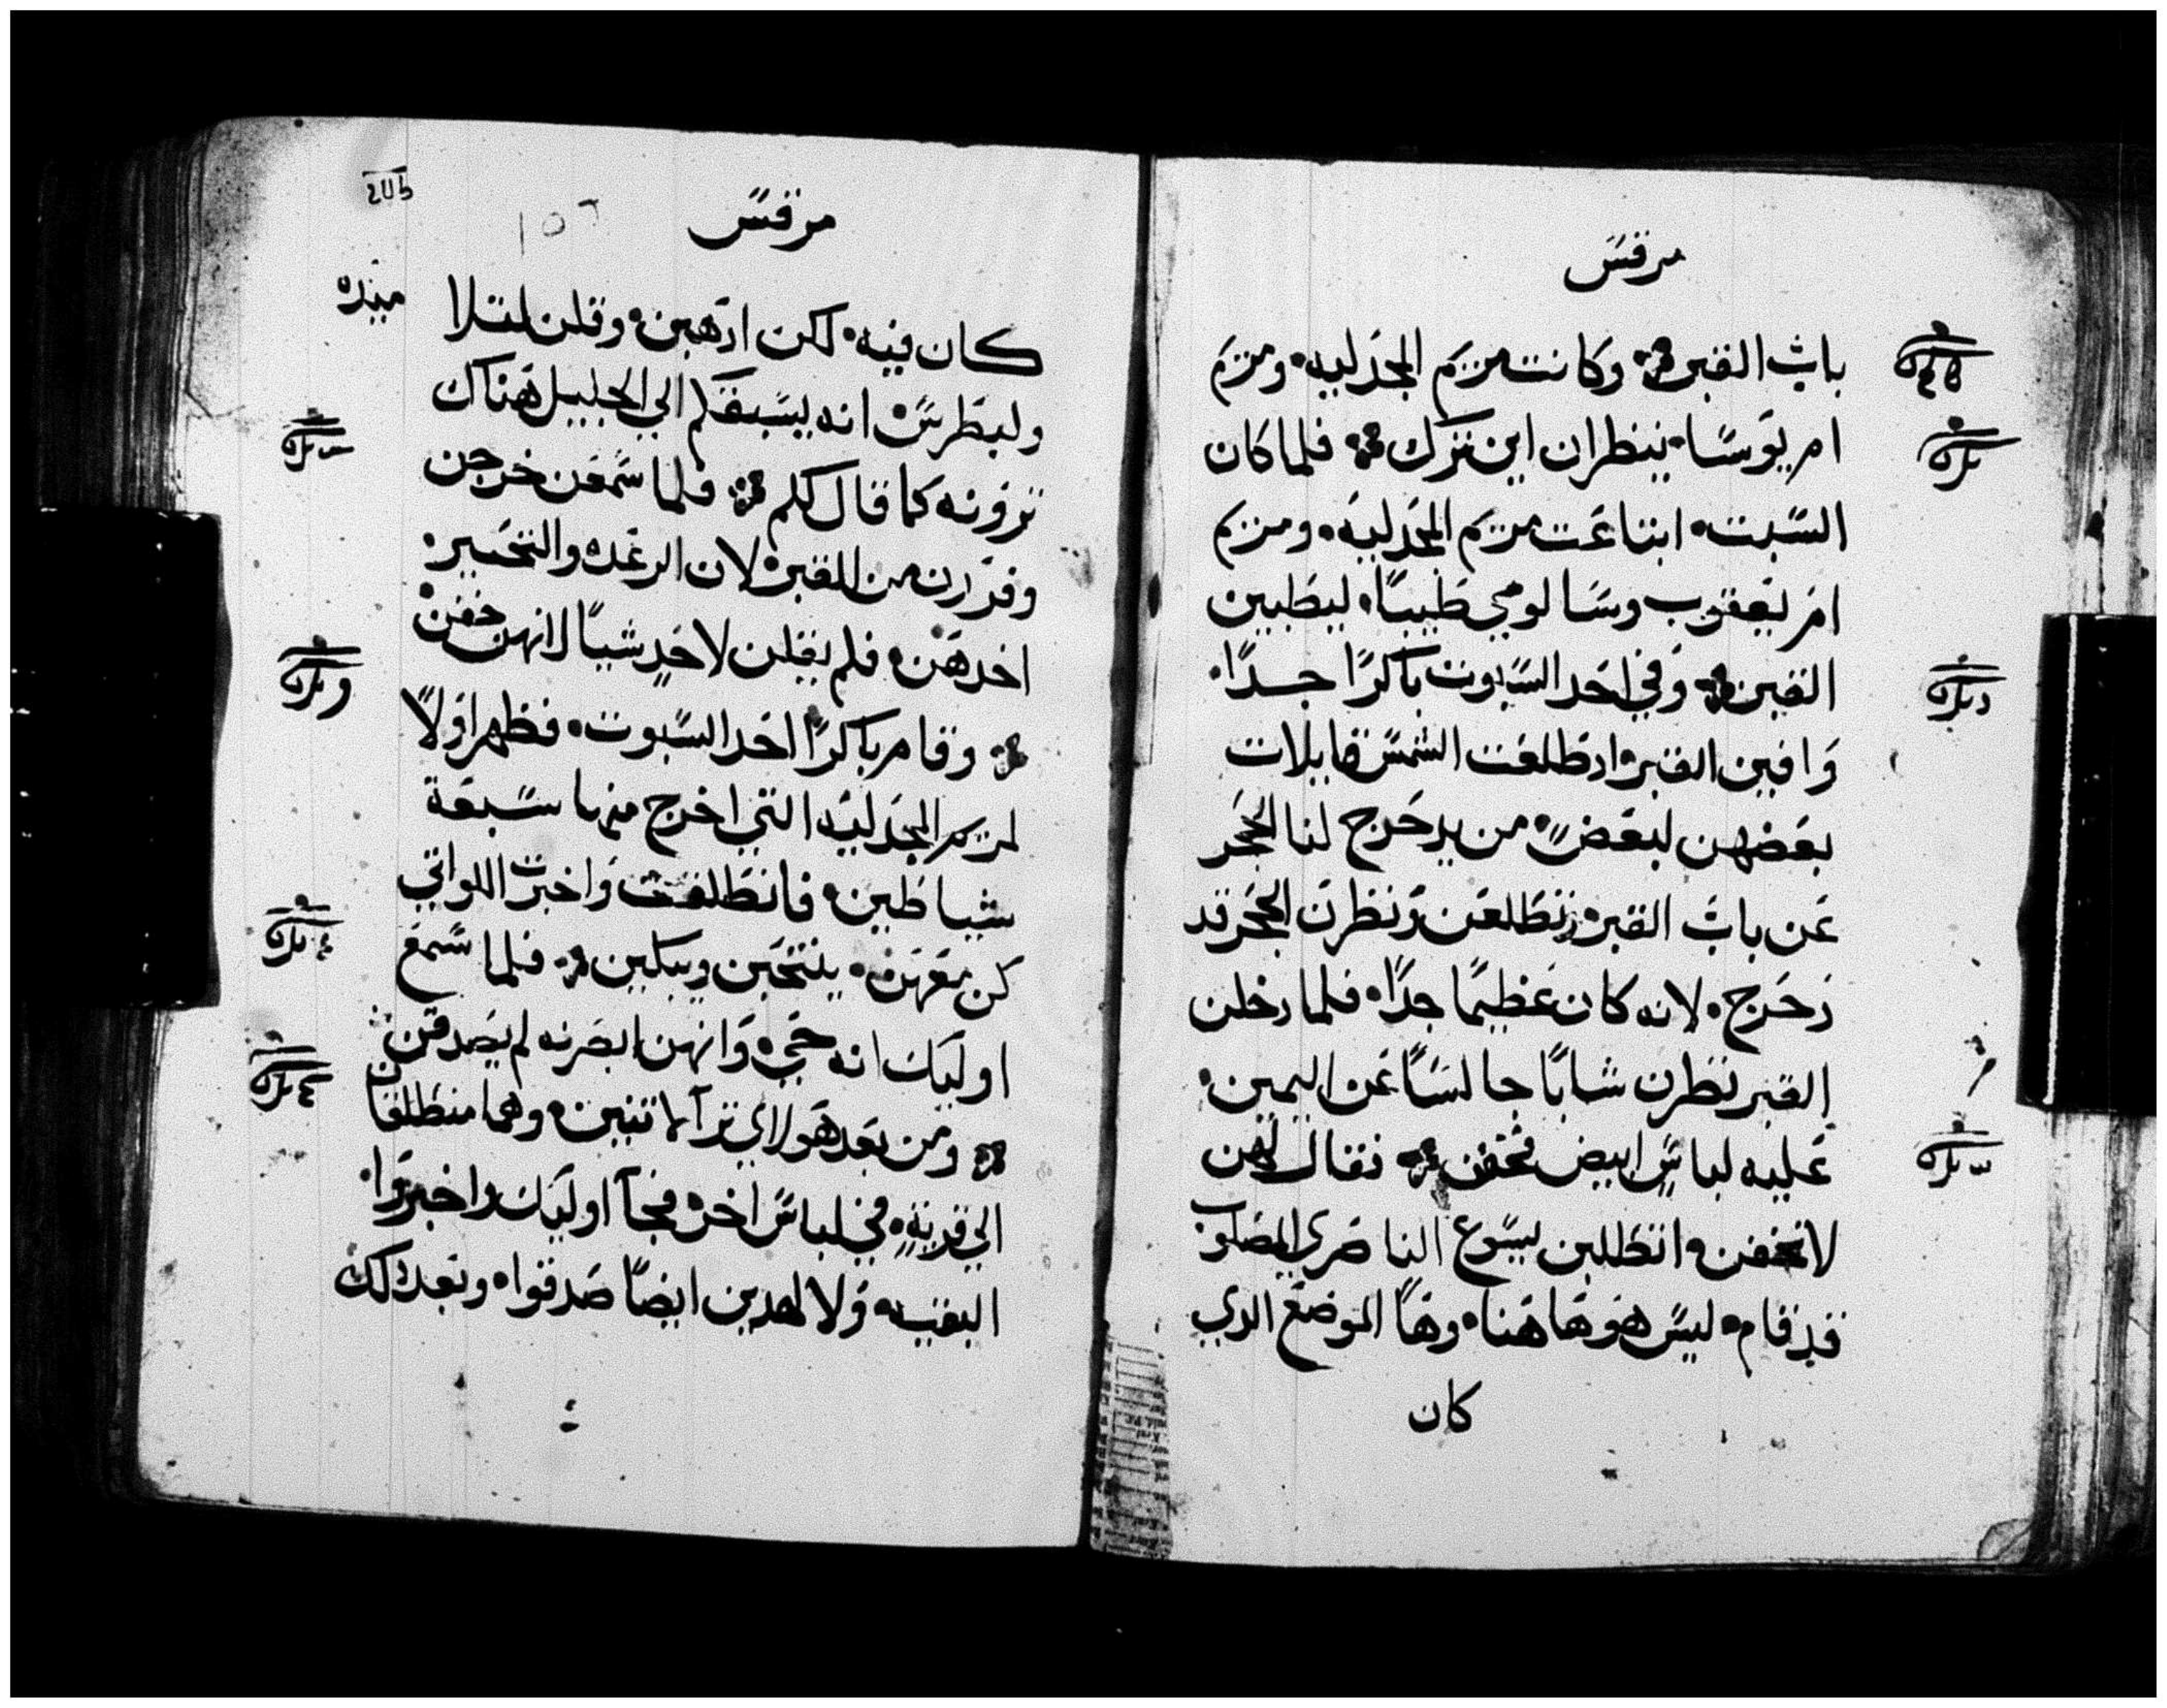 مرقس
باب القبر وكانت مريم المجدليه ومريم
ام يوسا ينظران اين ترك فلما كان
السبت ابتاعت مريم المجدليه ومريم
ام يعقوب وسالومي طيبا ليطيبن
القبر وفي احد السبوت باكرا جدا
وافين القبر اد طلعت الشمس قايلات
بعضهن لبعض من يدحرج لنا الحجر
عن باب القبر تطلعن ونظرن الحجر قد
دحرج لانه كان عظيما جدا فلما دخلن
القبر نظرن شابا جالسا عن اليمين
عليه لباس ابيض فخفن فقال لهن
لا تخفن اتطلبن يسوع الناصري المصلوب
قد قام ليس هو هاهنا وها الموضع الدي
كان
مرقس
١٥٦
كان فيه لكن ادهبن وقلن لتلا
ميده
ولبطرس انه يسبقكم الي الجليل هناك
ترونه كما قال لكم فلما سمعن خرجن
وفررن من القبر لان الرعده والتحير
اخدهن فلم يقلن لاحد شيا لانهن خفن
وقام باكرا احد السبوت فظهر اولا
لمريم المجدليه التي اخرج منها سبعة
شياطين فانطلقت واخبرت اللواتي
كن معهن ينتحبن ويبكين فلما سمع
اوليك انه حي وانهن ابصرنه لم يصدقن
ومن بعد هولاي ترآ لاتنين وهما منطلقان
الي قرية في لباس اخر فجآ اوليك واخبروا
البقيه ولا لهدين ايضا صدقوا وبعد دلك